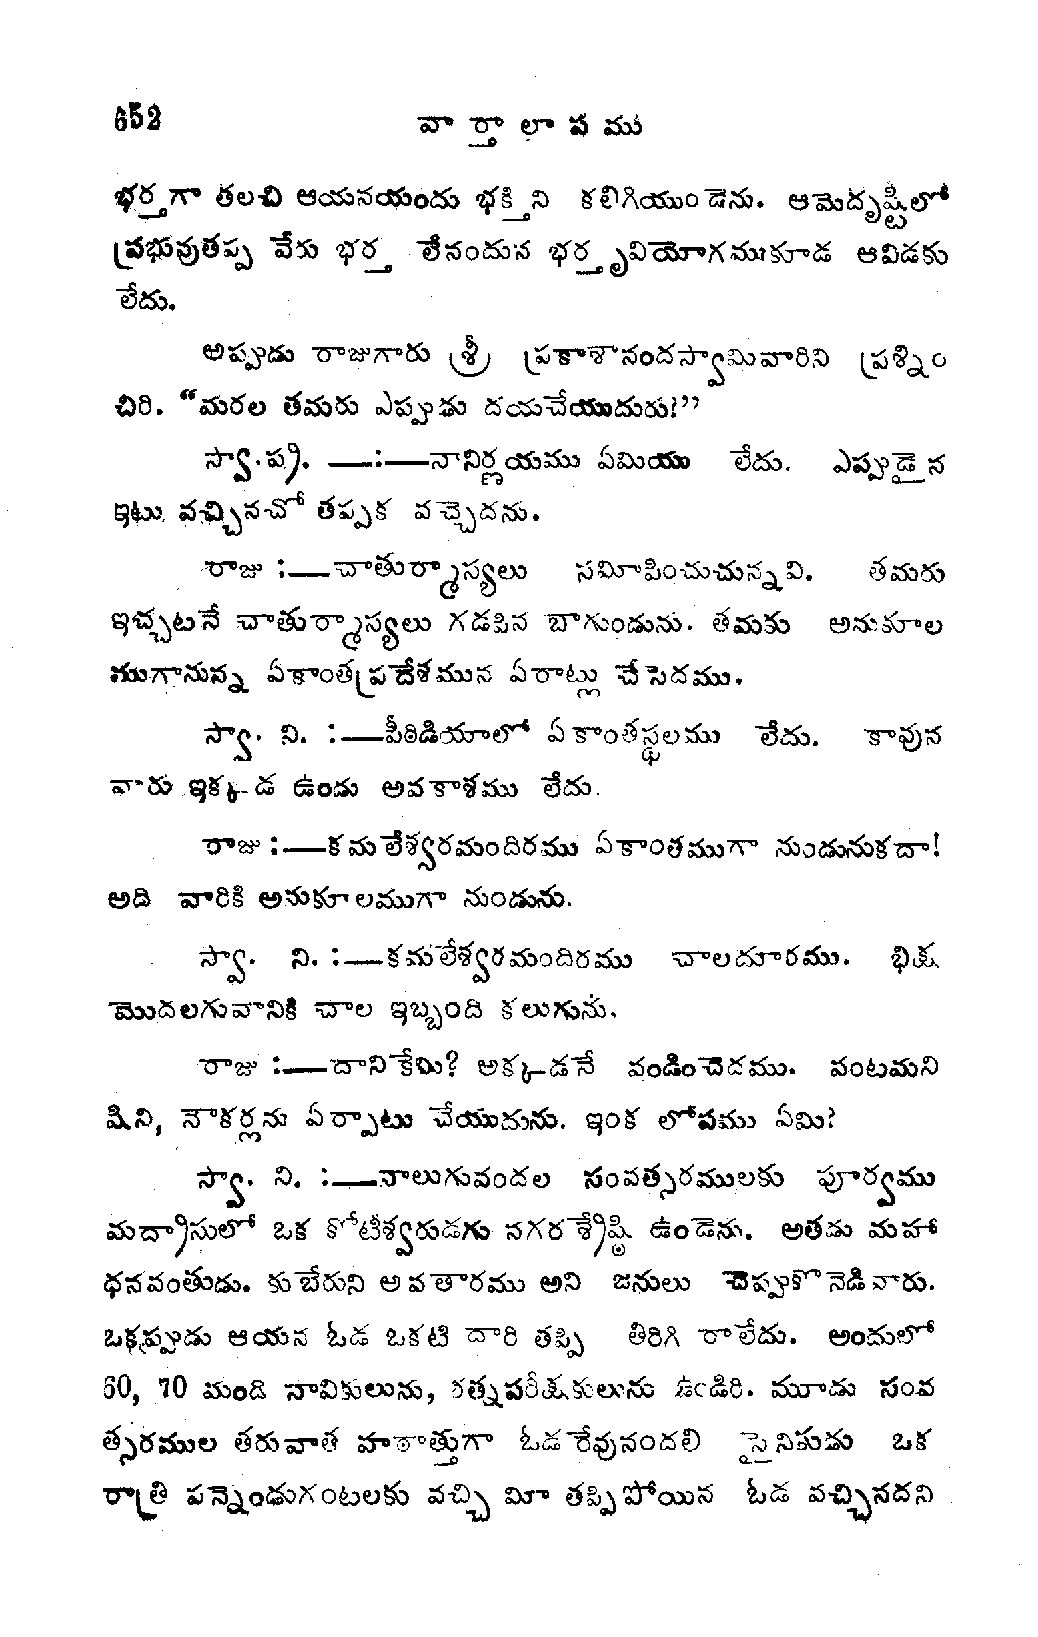 652
వార్తాలాపము
భర్తగా తలచి ఆయనయందు భక్తిని కలిగియుండెను. ఆమెదృష్టిలో
ప్రభువుతప్ప వేరు భర్త లేనందున భర్తృవియోగముకూడ ఆవిడకు
లేదు.
అప్పుడు రాజుగారు శ్రీ ప్రకాశానందస్వామివారిని ప్రశ్నిం
చిరి. "మరల తమరు ఎప్పుడు దయచేయుదురు?"
స్వా.ప్ర. —:—నానిర్ణయము ఏమియు లేదు. ఎప్పుడైన
ఇటు వచ్చినచో తప్పక వచ్చెదను.
రాజు :—చాతుర్మాస్యలు సమీపించుచున్నవి. తమరు
ఇచ్చటనే చాతుర్మాస్యలు గడపిన బాగుండును. తమకు అనుకూల
ముగానున్న ఏకాంతప్రదేశమున ఏర్పాట్లు చేసెదము.
స్వా. ని. :—పీఠిడియాలో ఏకాంతస్థలము లేదు. కావున
వారు ఇక్కడ ఉండు అవకాశము లేదు.
రాజు :—కమలేశ్వరమందిరము ఏకాంతముగా నుండునుకదా!
అది వారికి అనుకూలముగా నుండును.
స్వా. ని. :—కమలేశ్వరమందిరము చాలదూరము. భిక్ష
మొదలగువానికి చాల ఇబ్బంది కలుగును.
రాజు :—దానికేమి? అక్కడనే వండించెదము. వంటమని
షిని, నౌకర్లను ఏర్పాటు చేయుదును. ఇంక లోపము ఏమి?
స్వా. ని. :—నాలుగువందల సంవత్సరములకు పూర్వము
మద్రాసులో ఒక కోటీశ్వరుడగు నగరశ్రేష్ఠి ఉండెను. అతడు మహా
ధనవంతుడు. కుబేరుని అవతారము అని జనులు చెప్పుకొనెడివారు.
ఒకప్పుడు ఆయన ఓడ ఒకటి దారి తప్పి తిరిగి రాలేదు. అందులో
60, 70 మంది నావికులును, రత్నపరీక్షకులును ఉండిరి. మూడు సంవ
త్సరముల తరువాత హఠాత్తుగా ఓడరేవునందలి సైనికుడు ఒక
రాత్రి పన్నెండుగంటలకు వచ్చి మీ తప్పిపోయిన ఓడ వచ్చినదని